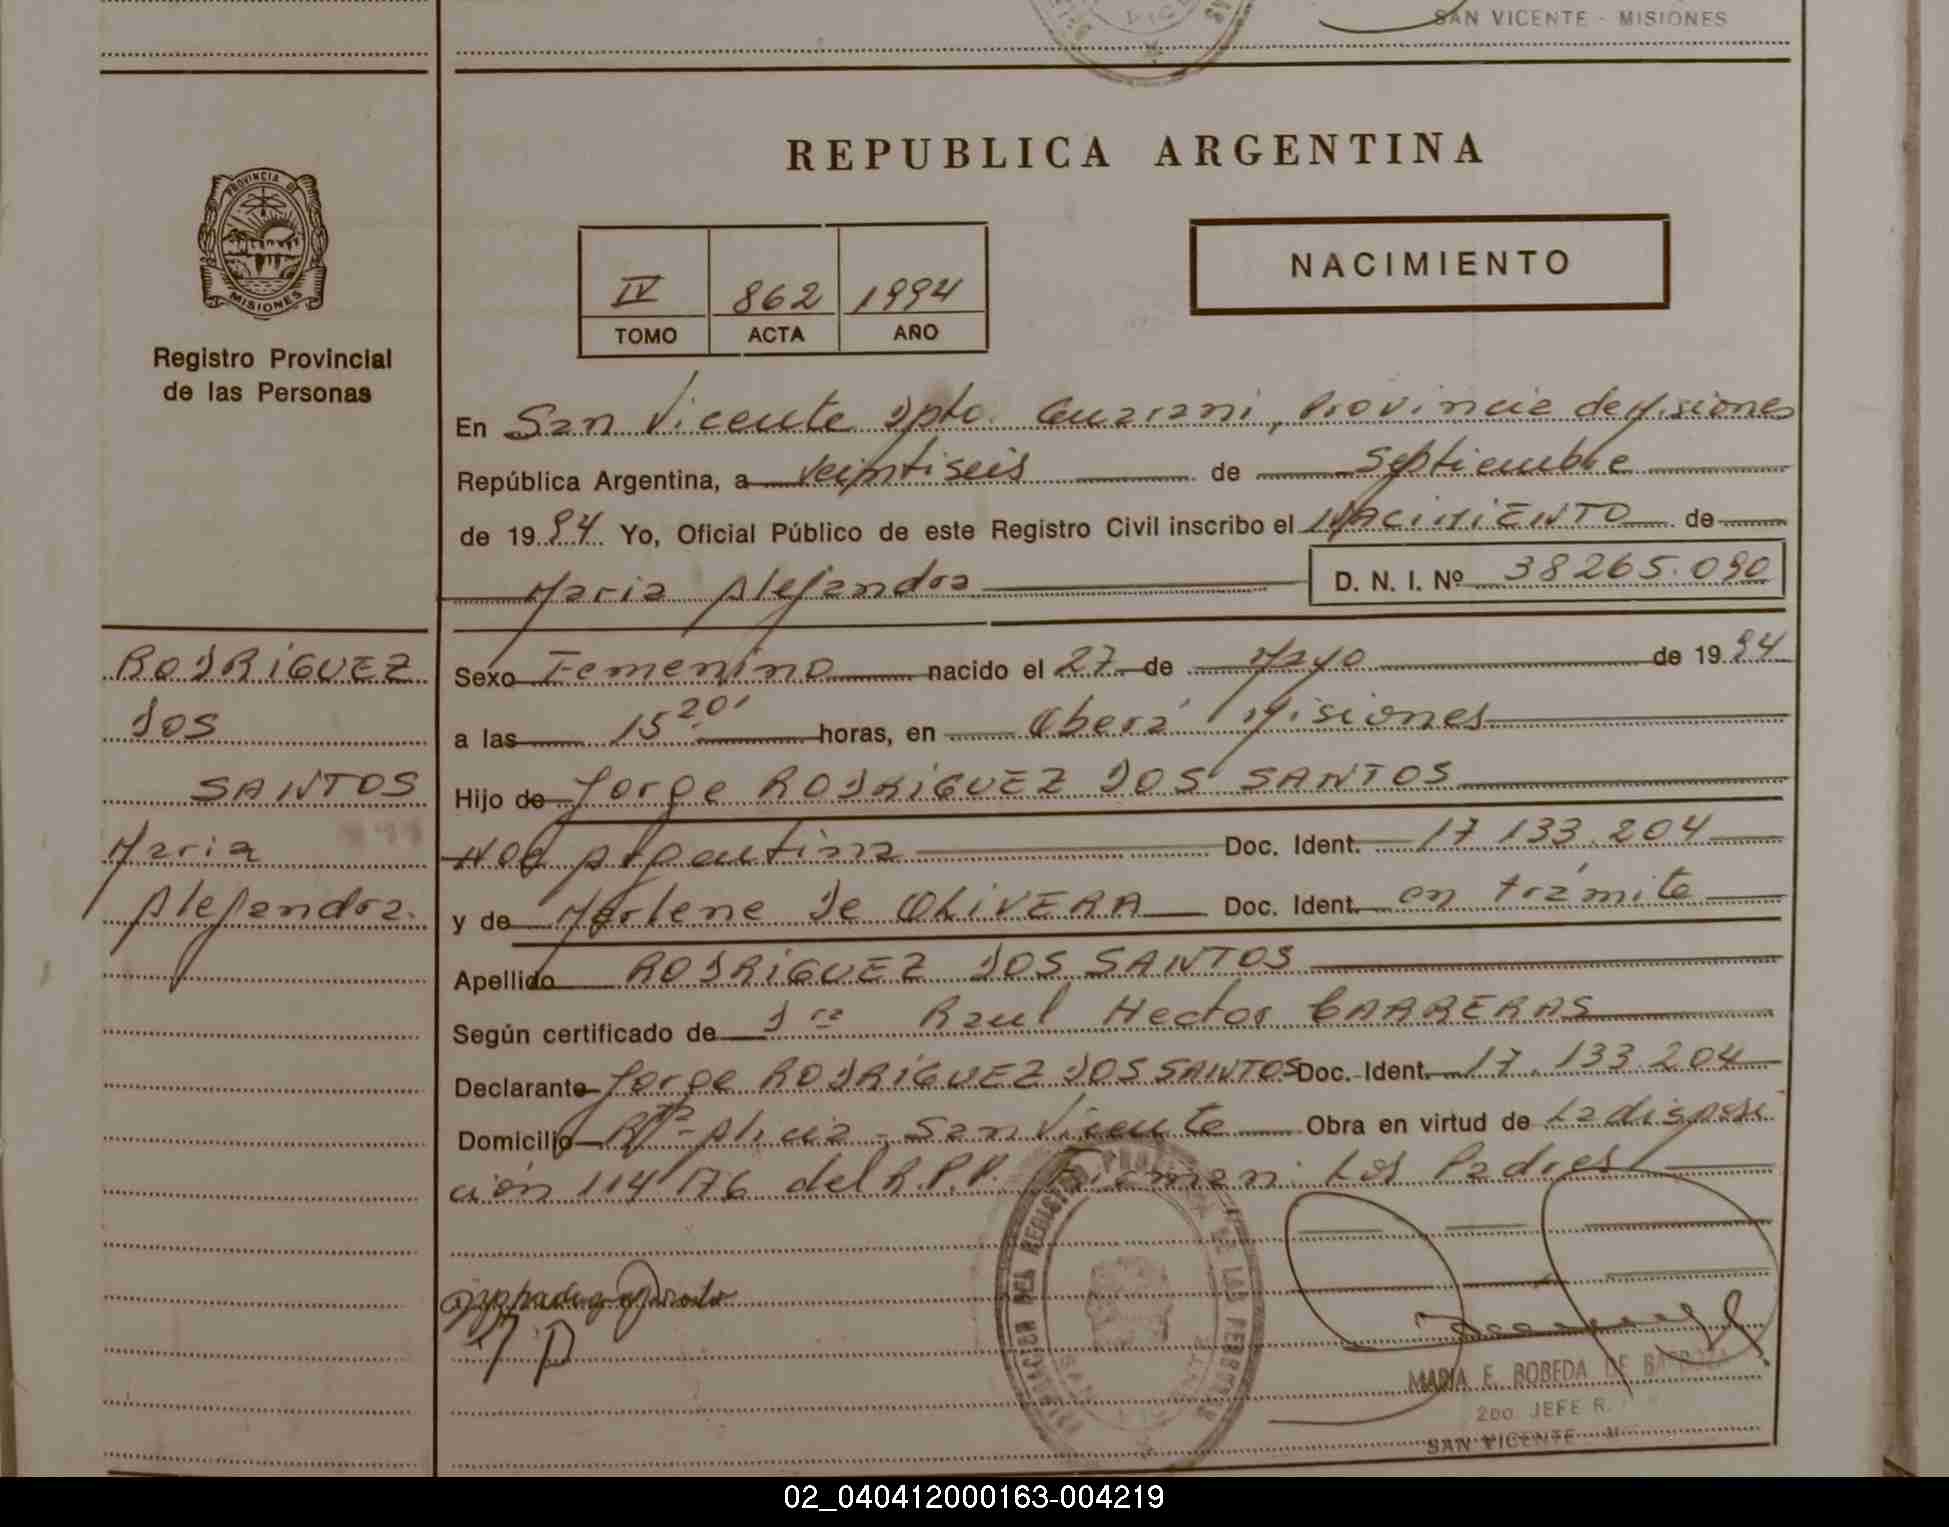 SAN VICENTE - MISIONES
REPUBLICA ARGENTINA
PROVINCIA DE
MISIONES
Registro Provincial
de las Personas
NACIMIENTO
IV 862 1994
TOMO ACTA AÑO
En San Vicente Dpto. Guarani, Provincia de Misiones
República Argentina, a veintiseis de Septiembre
de 1994 Yo, Oficial Público de este Registro Civil inscribo el NACIMIENTO de
Maria Alejandra D. N. I. Nº 38265.090
RODRIGUEZ
DOS
SANTOS
Maria
Alejandra.
Sexo Femenino nacido el 27 de Mayo de 1994
a las 15 20' horas, en Oberá Misiones
Hijo de Jorge RODRIGUEZ DOS SANTOS
Nac Argentina Doc. Ident. 17.133.204
y de Marlene De OLIVERA Doc. Ident. en trámite
Apellido RODRIGUEZ DOS SANTOS
Según certificado de Dra Raul Hector CARRERAS
Declarante Jorge RODRIGUEZ DOS SANTOS Doc. Ident. 17.133.204
Domicilio Alicia - San Vicente Obra en virtud de La disposi
ción 114/76 del R.P.P. Firman: Los Padres
MARIA E. BOBEDA DE BARBOZA
2do. JEFE R.
SAN VICENTE - M
02_040412000163-004219